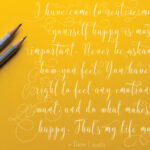 I have come to realize making
yourself happy is most
important. Never be ashamed
how you feel. You have the
right to feel any emotion
want, and do what makes
happy. That's my life motto